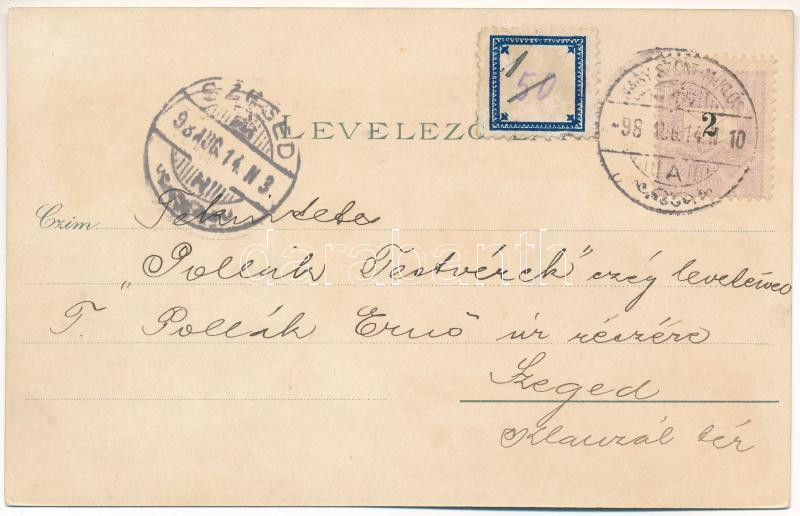 LEVELEZŐ
1
50
2
NAGY-SZENT-MIKLÓS
98 AUG. 14. N 10
A
SZEGED
98 AUG. 14. N 3
Czim.
Tekintetes
"Pollák Testvérek" czég leveleivel
T. Pollák Ernő úr részére
Szeged
Klauzál tér
darabanth